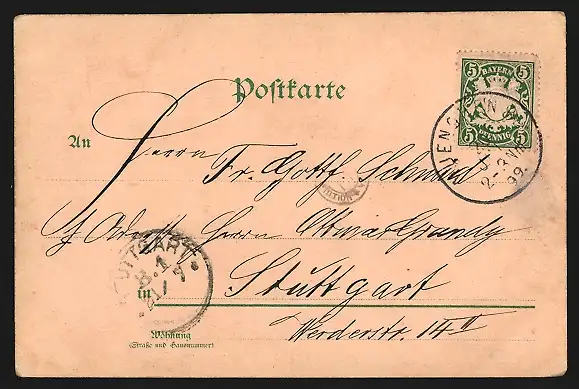 Postkarte
5 BAYERN 5
5 PFENNIG 5
2-3 NM
99.
An
Herrn
Fr. Gotth. Schmid
Herrn Otmar Grundy
STUTTGART
in Stuttgart
Werderstr. 14 II
Wohnung
(Straße und Hausnummer)